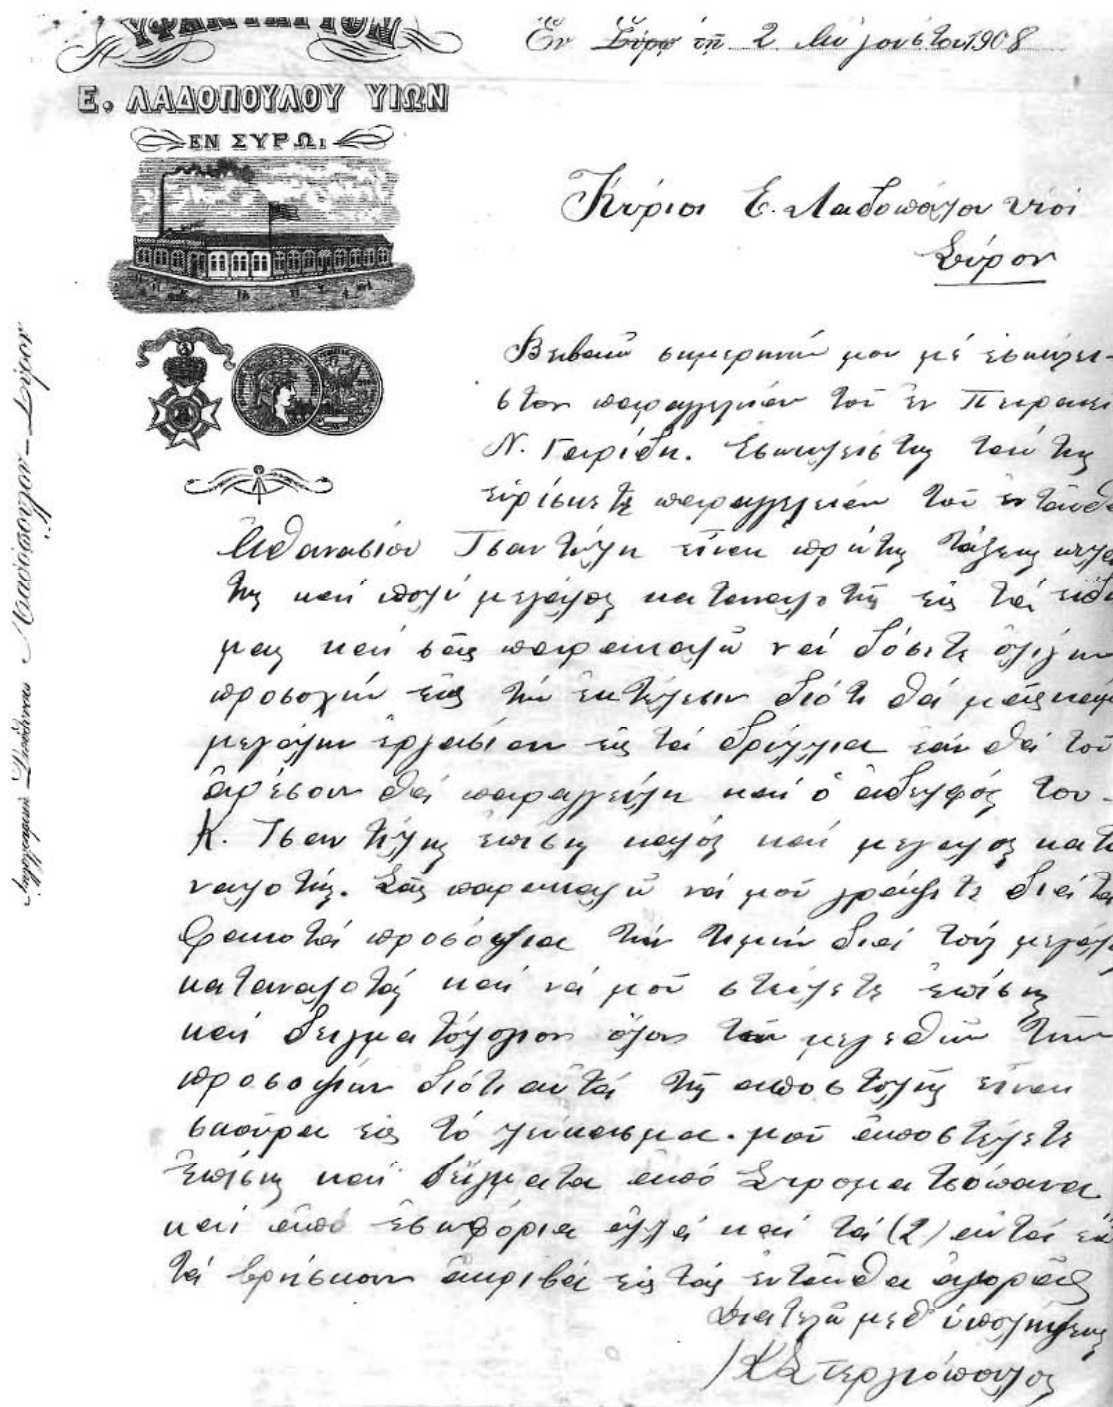 ΥΦΑΝΤΗΡΙΟΝ
Ε. ΛΑΔΟΠΟΥΛΟΥ ΥΙΩΝ
ΕΝ ΣΥΡΩι
Ἐν Σύρῳ τῇ 2 Αὐγούστου 1908
Κύριοι Ε. Λαδοπούλου Υἱοί
Σύρον
σημερινήν μου μέ ἐσώκλει-
στον παραγγελίαν τοῦ ἐν Πειραιεῖ
Ν. Γαρίδη. Ἐσωκλείστως
εὑρίσκετε παραγγελείαν τοῦ ἐνταῦθα
Ἀθανασίου Τσαντήλη εἶναι πρώτης τάξεως πελά
της καί πολύ μεγάλος καταναλοτής εἰς τά εἴδη
μας καί σᾶς παρακαλῶ νά δόσετε ὀλίγην
προσοχήν εἰς τήν ἐκτέλεσιν διότι θά μᾶς κάμῃ
μεγάλην ἐργασίαν εἰς τά δρίλλια ἐάν θά τοῦ
ἀρέσουν θά παραγγείλη καί ὁ ἀδελφός του
Κ. Τσαντήλης ἐπίσης καλός καί μεγάλος κατα
ναλοτής. Σᾶς παρακαλῶ νά μοῦ γράψετε διά τά
προσόψια τήν τιμήν διά τούς μεγάλους
καταναλοτάς καί νά μοῦ στείλετε ἐπίσης
καί δειγματολόγιον ὅλον τῶν μεγεθῶν τῶν
προσοψίων διότι αὐτά τῆς ἀποστολῆς εἶναι
σκούρα εἰς τό λεύκασμα. μοῦ ἀποστέλετε
ἐπίσης καί δείγματα ἀπό Στροματσόπανα
καί ἀπό ἐσωφόρια ἀλλά καί τά (2) αὐτά
τά βρήσκουν ἀκριβά εἰς τάς ἐνταῦθα ἀγοράς
Διατελῶ μεθ' ὑπολήψεως
Κ Στεργιόπουλος
Τηλεγραφική Διεύθυνσις Λαδόπουλον—Σύρον